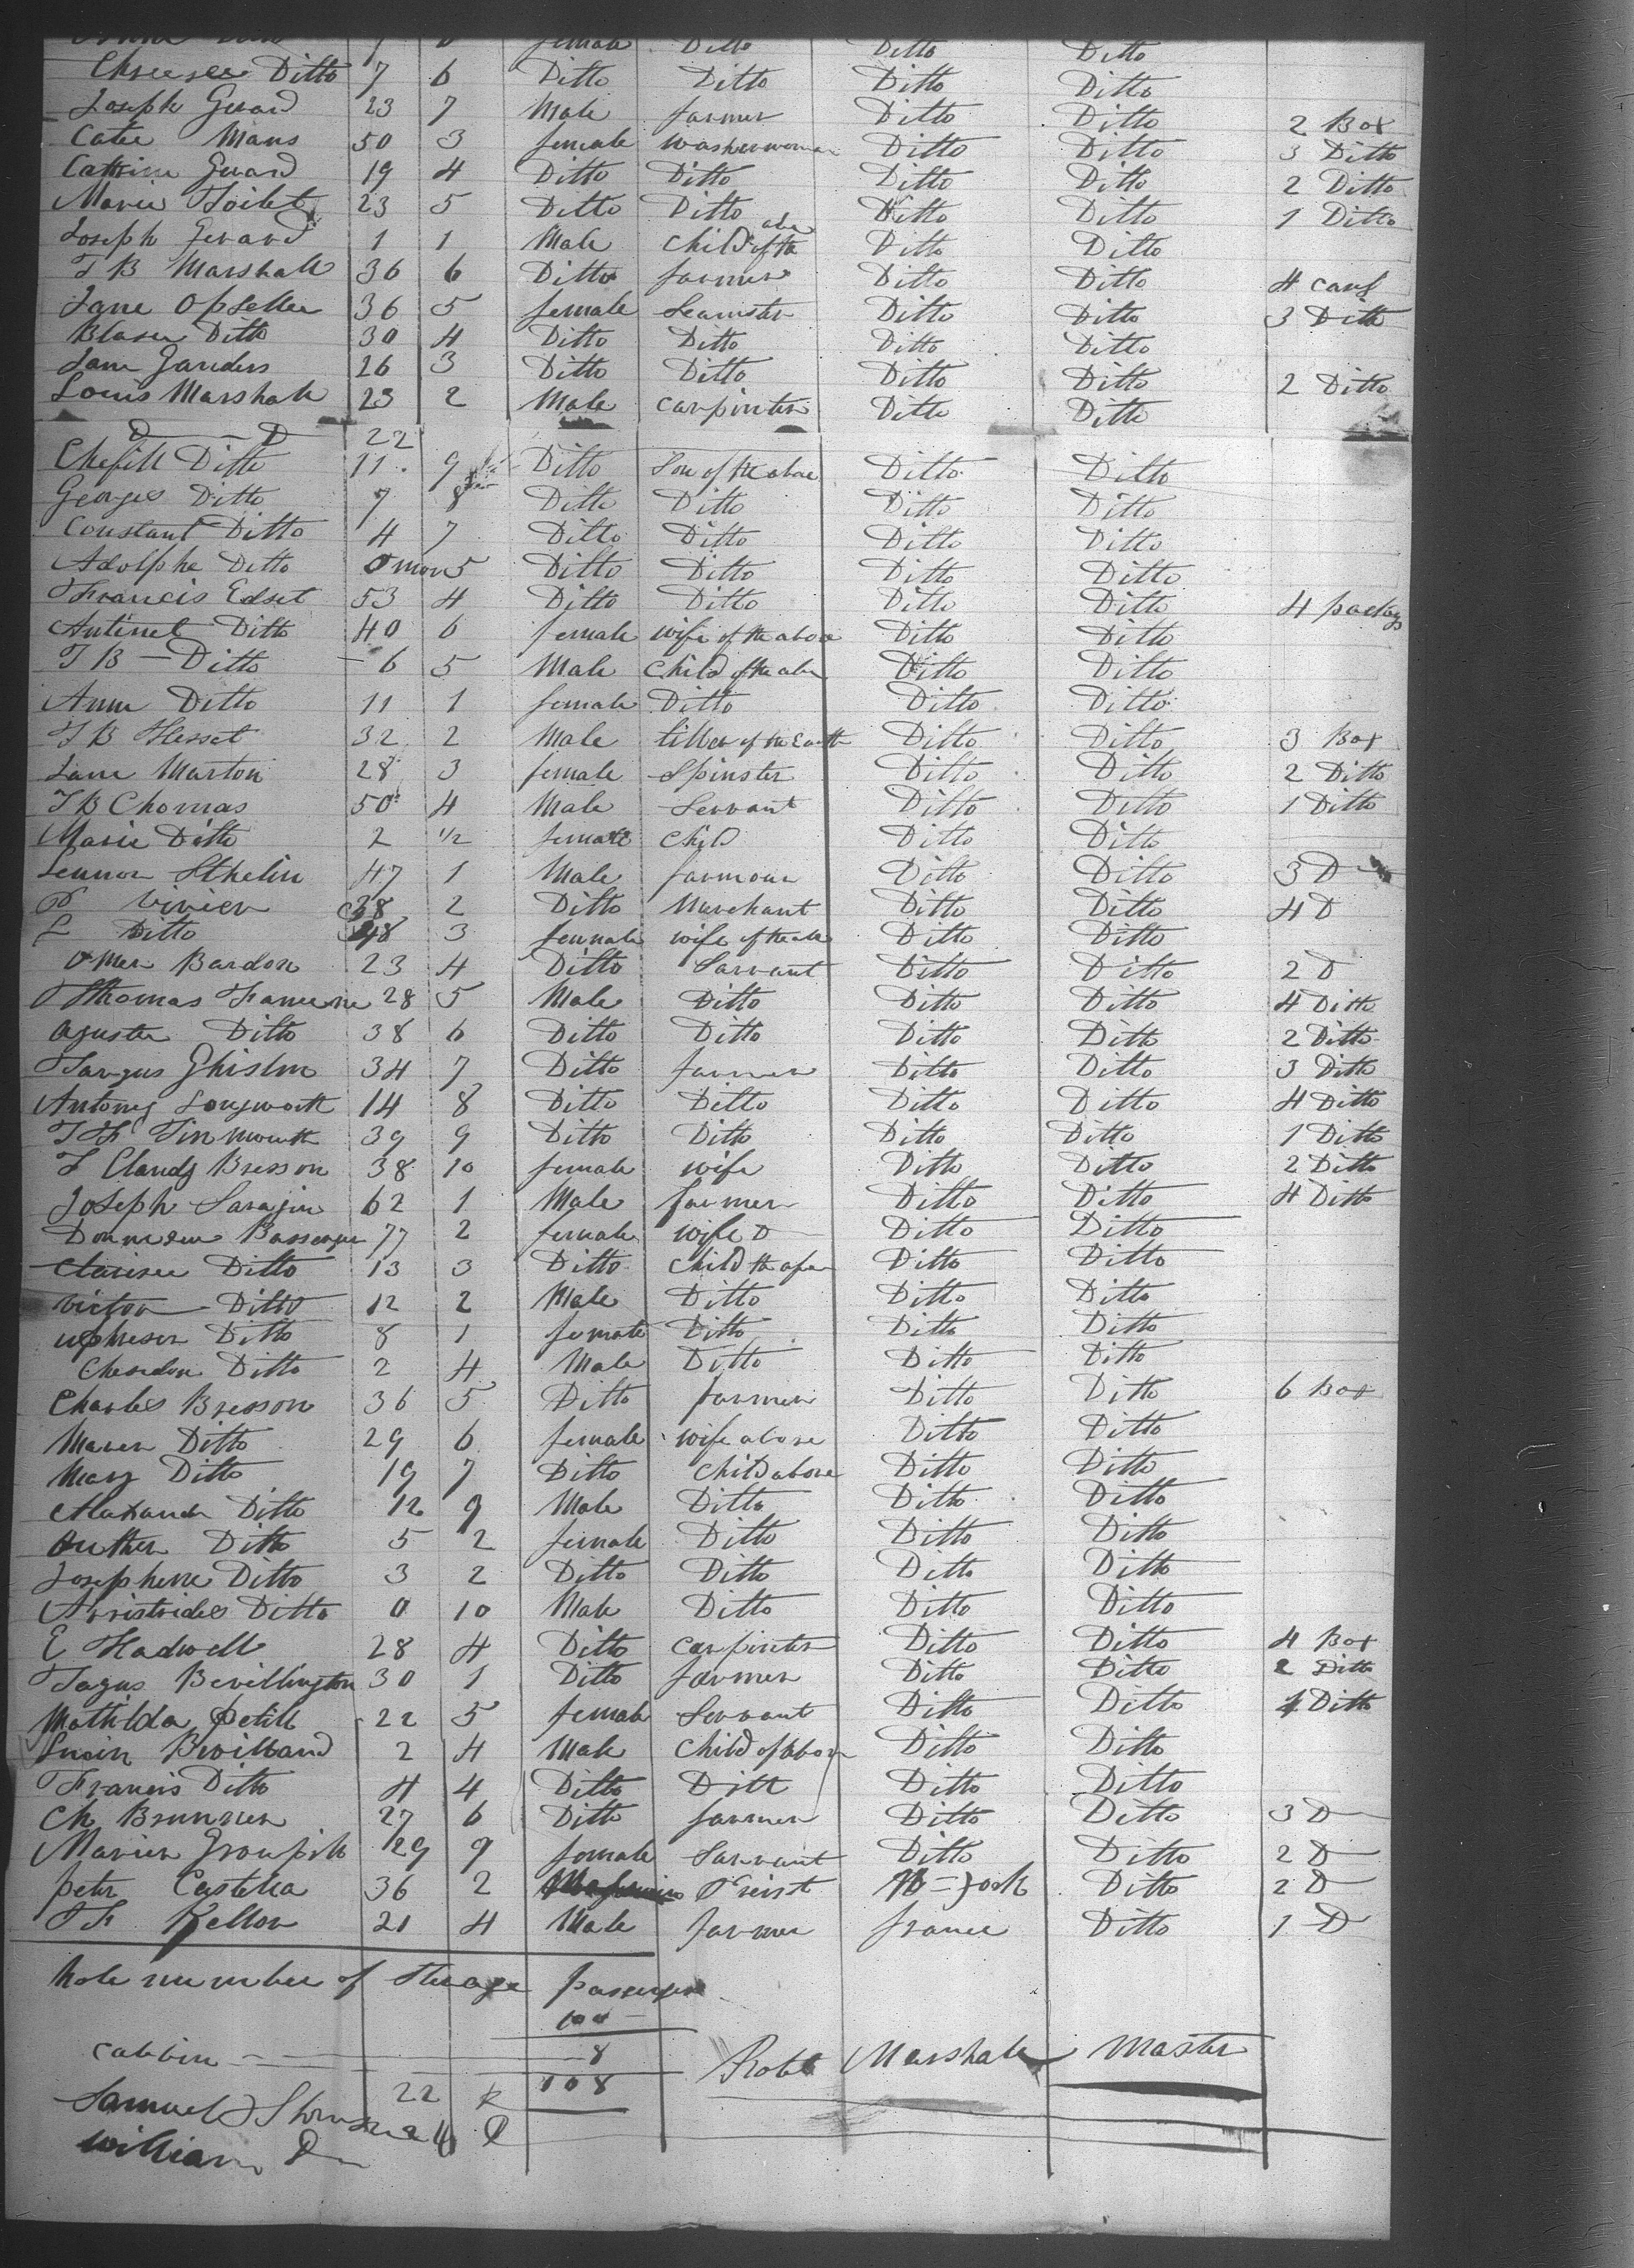 female Ditto Ditto Ditto
Ditto 7 6 Ditto Ditto Ditto Ditto
Joseph Guard 23 7 Male farmer Ditto Ditto 2 Box
Catie Mans 50 3 female washerwoman Ditto Ditto 3 Ditto
Cattrine Guard 19 4 Ditto Ditto Ditto Ditto 2 Ditto
Marie Toilet 23 5 Ditto Ditto Ditto Ditto 1 Ditto
Joseph Gerard 1 1 Male child of the abe Ditto Ditto
T B Marshall 36 6 Ditto farmer Ditto Ditto 4
Jane 36 5 female Seamster Ditto Ditto 3 Ditto
Blaser Ditto 30 4 Ditto Ditto Ditto Ditto
Jane Ganders 26 3 Ditto Ditto Ditto Ditto 2 Ditto
Louis Marshall 23 2 Male carpinter Ditto Ditto
D D 22
Ditto 11 9 Ditto Son of the above Ditto Ditto
Georges Ditto 7 8 Ditto Ditto Ditto Ditto
Constant Ditto 4 7 Ditto Ditto Ditto Ditto
Adolphe Ditto 0 mon 5 Ditto Ditto Ditto Ditto
Francis Edset 53 4 Ditto Ditto Ditto Ditto 4 packgs
Antinet Ditto 40 6 female wife of the above Ditto Ditto
T B — Ditto 6 5 Male Child of the abe Ditto Ditto
Ann Ditto 11 1 female Ditto Ditto Ditto
T B Hesset 32 2 Male tiller of the Earth Ditto Ditto 3 Box
Jane Marton 28 3 female Spinster Ditto Ditto 2 Ditto
T B Chomas 50 4 Male Servant Ditto Ditto 1 Ditto
Marie Ditto 2 1/2 female child Ditto Ditto
Lennor Sthelin 47 1 Male farmour Ditto Ditto 3 D
P Vivier 38 2 Ditto Marchant Ditto Ditto 4 D
L Ditto 48 3 female wife of the abe Ditto Ditto
Omer Bardon 23 4 Ditto Sarvant Ditto Ditto 2 D
Thomas 28 5 Male Ditto Ditto Ditto 4 Ditto
Aguster Ditto 38 6 Ditto Ditto Ditto Ditto 2 Ditto
Targus Ghislm 34 7 Ditto farmer Ditto Ditto 3 Ditto
Antony Longworth 14 8 Ditto Ditto Ditto Ditto 4 Ditto
T F Tinmouth 39 9 Ditto Ditto Ditto Ditto 1 Ditto
F Claudy Bresson 38 10 female wife Ditto Ditto 2 Ditto
Joseph Sarajin 62 1 Male farmer Ditto Ditto 4 Ditto
77 2 female wife D Ditto Ditto
Clarisee Ditto 13 3 Ditto Child Ditto Ditto
Victor Ditto 12 2 Male Ditto Ditto Ditto
Ditto 8 1 female Ditto Ditto Ditto
Chesedon Ditto 2 4 Male Ditto Ditto Ditto
Charles Bresson 36 5 Ditto farmer Ditto Ditto 6 Box
Maren Ditto 29 6 female wife above Ditto Ditto
Mary Ditto 19 7 Ditto child above Ditto Ditto
Alaxander Ditto 12 9 Male Ditto Ditto Ditto
Outher Ditto 5 2 female Ditto Ditto Ditto
Josephene Ditto 3 2 Ditto Ditto Ditto Ditto
Arristrides Ditto 0 10 Male Ditto Ditto Ditto
E Hadwell 28 4 Ditto carpinter Ditto Ditto 4 Box
Tagus Bevillington 30 1 Ditto farmer Ditto Ditto 2 Ditto
Mathilda Petitt 22 5 female Servant Ditto Ditto 1 Ditto
2 4 Male Child of above Ditto Ditto
Francis Ditto 4 4 Ditto Ditt Ditto Ditto
Ch Brunner 27 6 Ditto farmer Ditto Ditto 3 D
Marier 29 9 female Sarvant Ditto Ditto 2 D
peter Castella 36 2 Preist N-York Ditto 2 D
T F Kellor 21 4 Male farmer france Ditto 1 D
hole number of Sterage passenger
100
cabbin 8
108
Robt Marshall Master
Samuel 22
William D